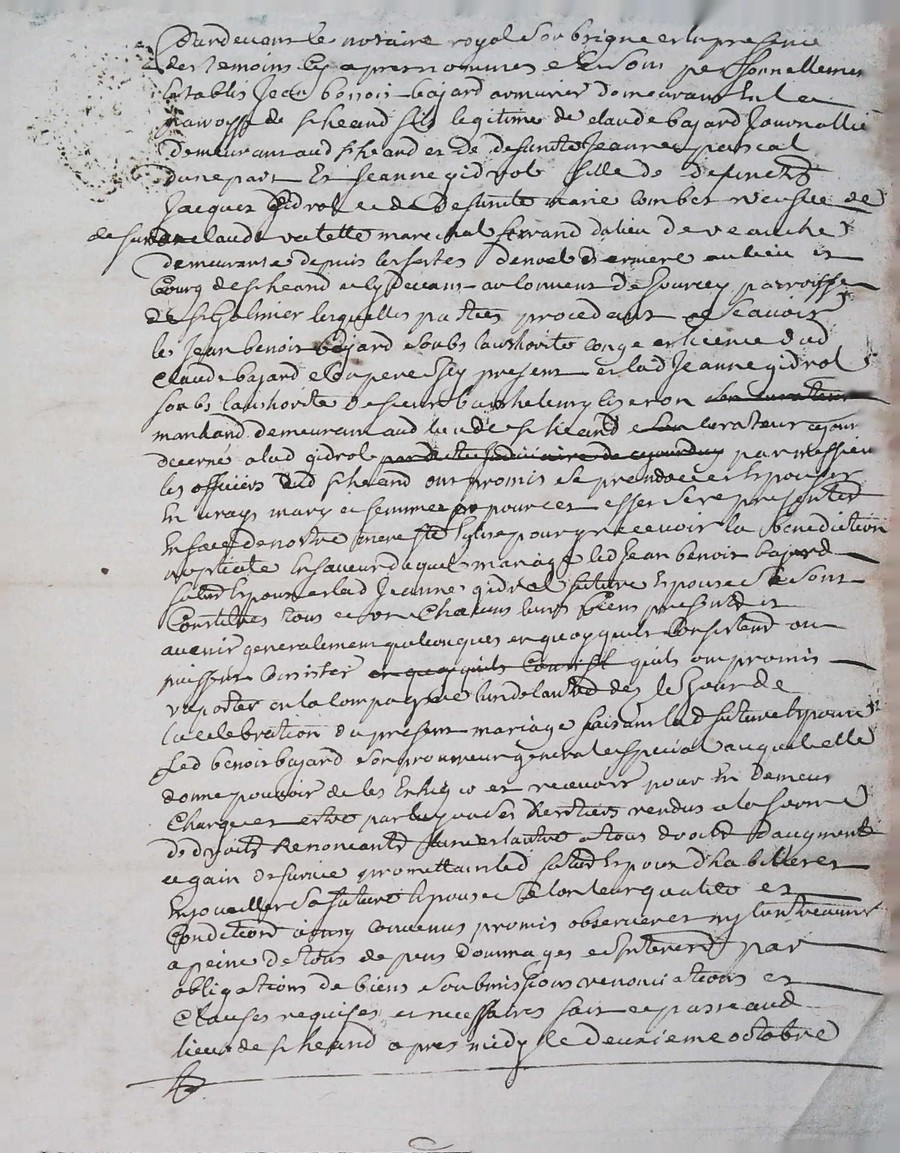 Pardevant le notaire royal soubsigné et en presence
des temoins cy apres nommes se sont personnellement
establis Jean benoist bajard armurier demeurant en la
parroisse de st heand fils legitime de claude bajard Journallie
demeurant aud st heand et de defunte Jeanne pascal
dune part Et Jeanne gidrol fille de defuncts
Jacques Gidrol et de Defunte marie combet veufue de
defunct claude valette marechal ferrand du lieu de veauche
demeurante depuis les festes de noel derniere au lieu et
bourg de st heand et cy devant au convent de Jourcey parroisse
de st Galmier lesquelles parties procedant scavoir
led Jean benoist bajard soubs lauthorité conge et licence dud
claude bajard son pere Icy present et lad Jeanne gidrol
soubs lauthorité de sieur barthelemy ligeron son curateur
marchand demeurant aud lieu de st heand son curateur a ce jour
decerné a lad gidrol par acte judiciaire de cejourdhuy par messieu
les officiers dud st heand ont promis se prendre et Epouser
En vrays mary et femme et pour cet effet se represanter
En face de notre mere ste Eglise pour y recevoir la benediction
nuptiale En faveur duquel mariage led Jean benoist bajard
futur Epoux et lad Jeanne gidrol future Epouse se sont
Constitués tous et un chacuns leurs biens presents et
avenir generalement quelconques en quoy quils consistent ou
puissent consister en quoy quils consist quils ont promis
raporter en la compagnie lun de lautre des le Jour de
la celebration du present mariage faisant lad future Epouse
led benoist bajard son procureur general et special auquel elle
donne pouvoir de les Exhiger et recevoir pour En Demeurer
chargé et estre par luy ou ses heritiers rendus a la forme
de droit Renoncants lun et lautre a tous droits daugment
et gain de survie promettant led futur Epoux dhabiller et
Enjoueller sa future Epouse selon leur qualité et
Condition ainsy convenus promis observer et ny contrevenir
a peine de tous depens dommages et Interests par
obligations de biens soubmissions renonciations et
clauses requises et necessaires fait et passé aud
lieu de st heand apres midy le deuxieme octobre